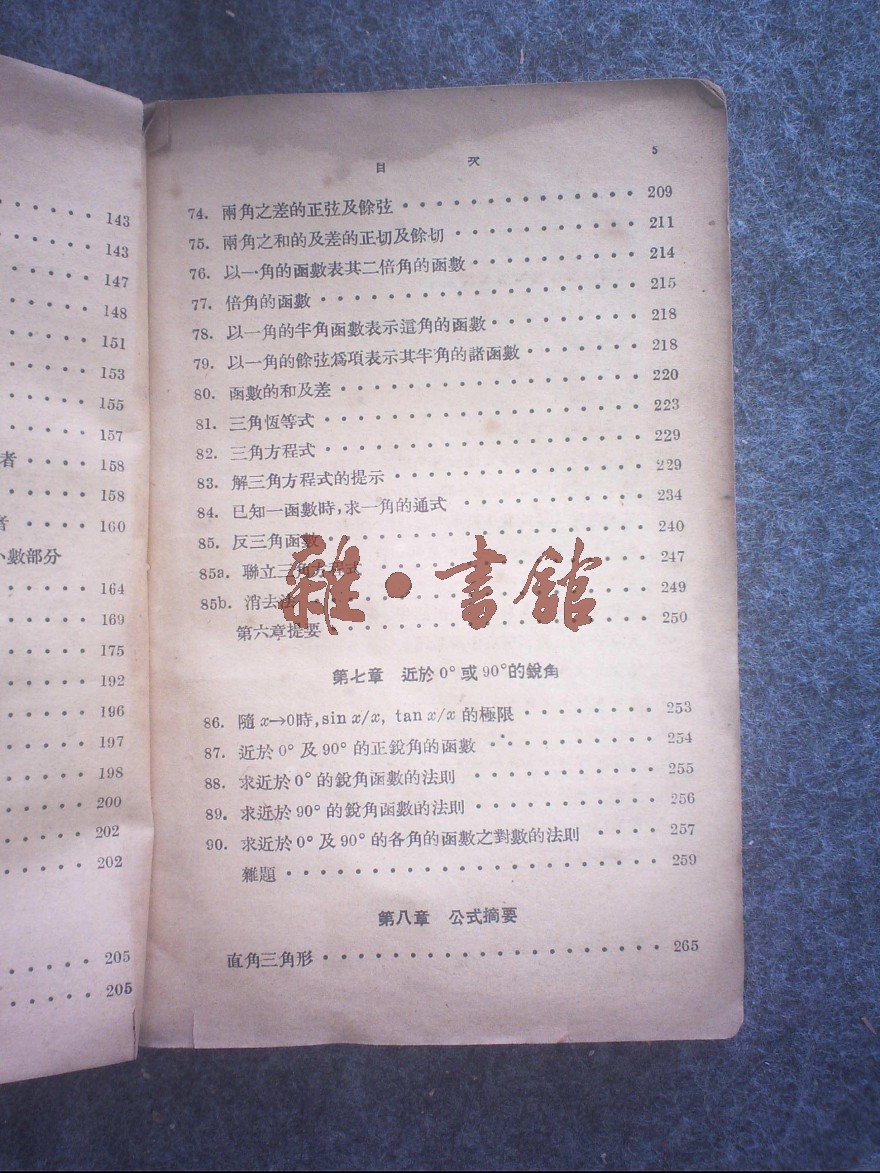 143
143
147
148
151
153
155
157
者 · · · · 158
158
者 · · · · 160
小數部分
164
169
175
192
196
197
198
200
202
202
205
205
目 次 5
74. 兩角之差的正弦及餘弦 · · · · · · 209
75. 兩角之和的及差的正切及餘切 · · · · · · 211
76. 以一角的函數表其二倍角的函數 · · · · · · 214
77. 倍角的函數 · · · · · · 215
78. 以一角的半角函數表示這角的函數 · · · · · · 218
79. 以一角的餘弦爲項表示其半角的諸函數 · · · · · · 218
80. 函數的和及差 · · · · · · 220
81. 三角恆等式 · · · · · · 223
82. 三角方程式 · · · · · · 229
83. 解三角方程式的提示 · · · · · · 229
84. 已知一函數時,求一角的通式 · · · · · · 234
85. 反三角函數 · · · · · · 240
85a. 聯立三角方程式 · · · · · · 247
85b. 消去法 · · · · · · 249
第六章提要 · · · · · · 250
雜·書館
第七章 近於 0° 或 90° 的銳角
86. 隨 x→0時, sin x/x, tan x/x 的極限 · · · · · · 253
87. 近於 0° 及 90° 的正銳角的函數 · · · · · · 254
88. 求近於 0° 的銳角函數的法則 · · · · · · 255
89. 求近於 90° 的銳角函數的法則 · · · · · · 256
90. 求近於 0° 及 90° 的各角的函數之對數的法則 · · · · 257
雜題 · · · · · · 259
第八章 公式摘要
直角三角形 · · · · · · 265